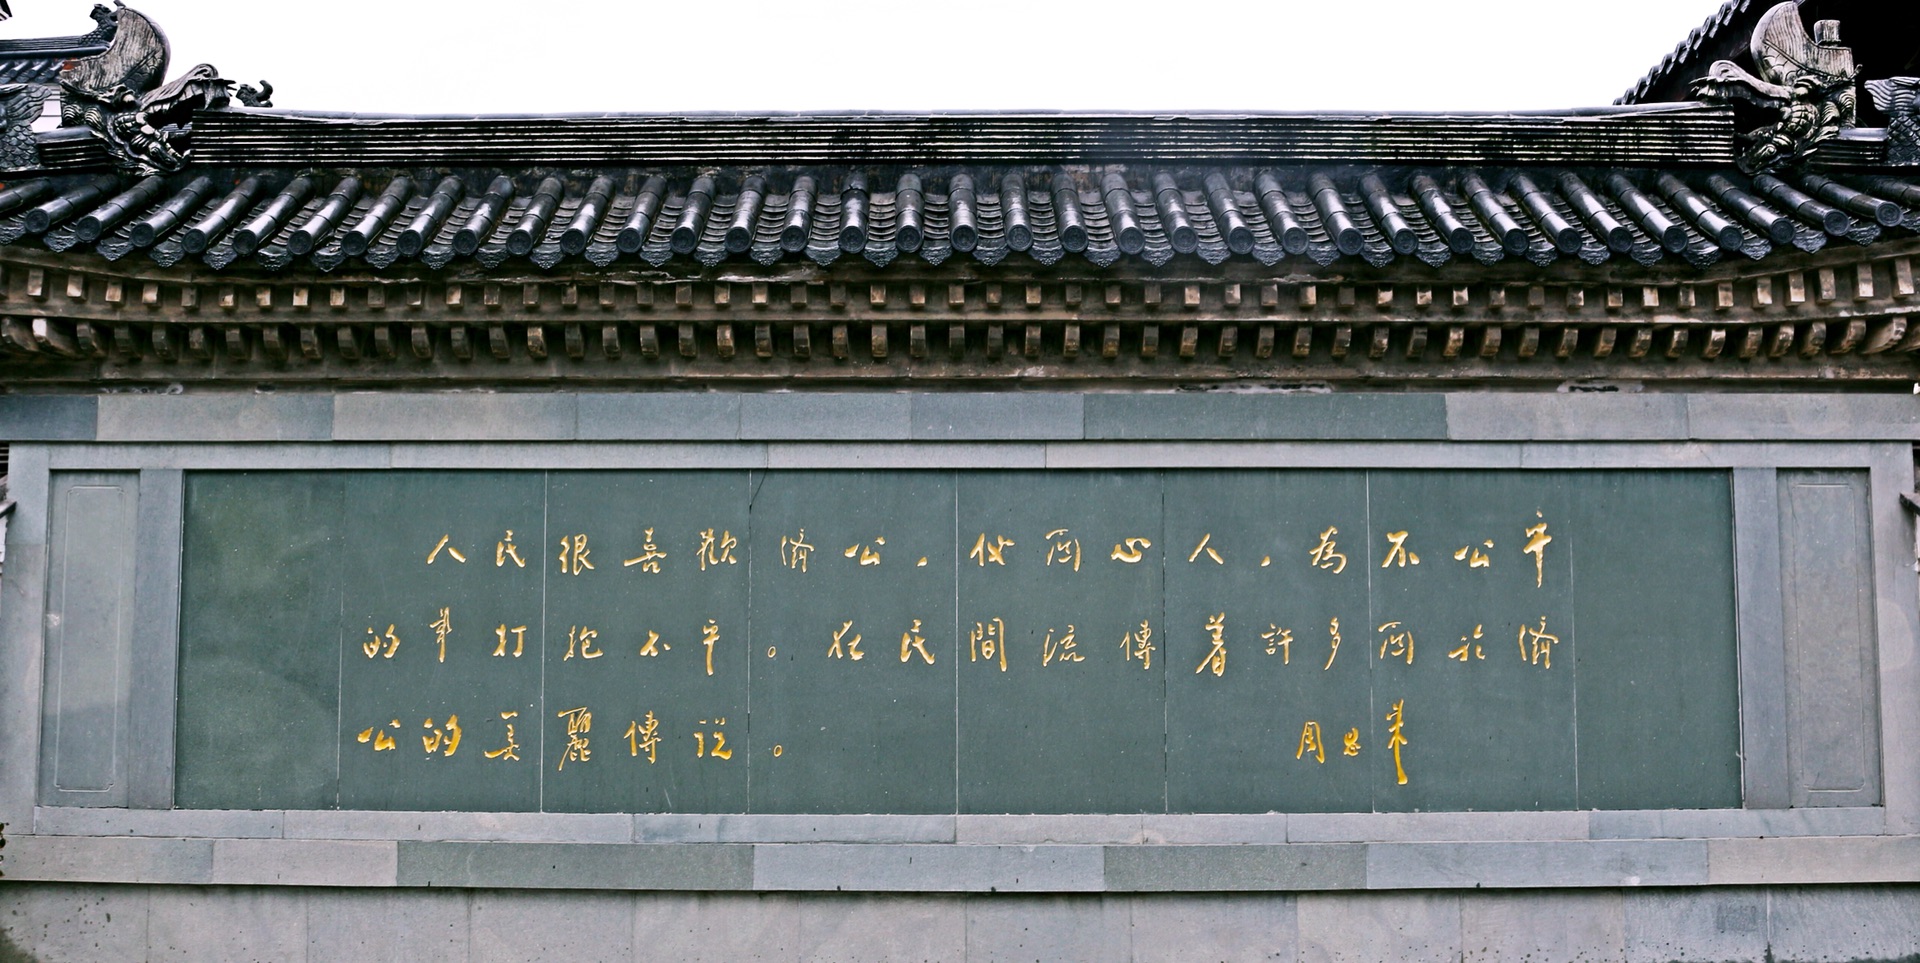 人民很喜歡濟公，他関心人，為不公平
的事打抱不平。在民間流傳着許多関於濟
公的美麗傳説。
周恩来